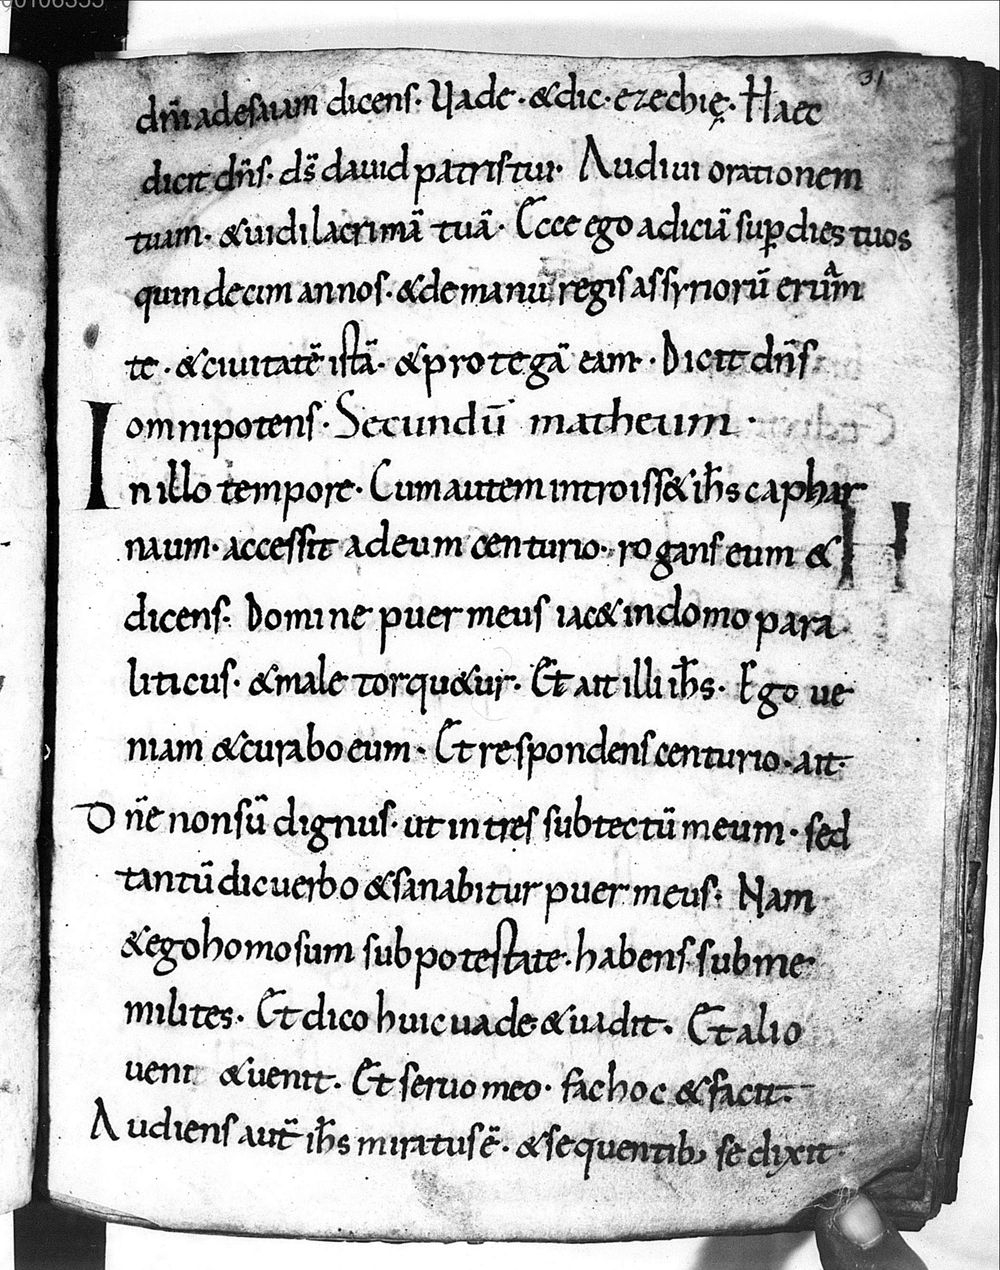 00106355
31
dñi ad esaiam dicens· Vade· &dic· ezechię· Haec
dicit dñs· d̄s dauid patris tui· Audiui orationem
tuam· &uidi lacrimā tuā· Ecce ego adiciā sup̱ dies tuos
quindecim annos· &de manu regis assyriorū eruam
te· &ciuitatē istā· &protegā eam· Dicit dñs
omnipotens· Secundū matheum·
In illo tempore· Cum autem introiss& ih̄s caphar
naum· accessit ad eum centurio· rogans eum &
dicens· Domine puer meus iac& in domo para
liticus· &male torqu&ur· Et ait illi ih̄s· Ego ue
niam &curabo eum· Et respondens centurio· ait
Dn̄e non sū dignus· ut intres sub tectū meum· sed
tantū dic uerbo &sanabitur puer meus· Nam
&ego homo sum sub potestate· habens sub me
milites· Et dico huic uade &uadit· Et alio
ueni &uenit· Et seruo meo· fac hoc &facit·
Audiens aut̄ ih̄s miratus ē· &sequentib; se dixit